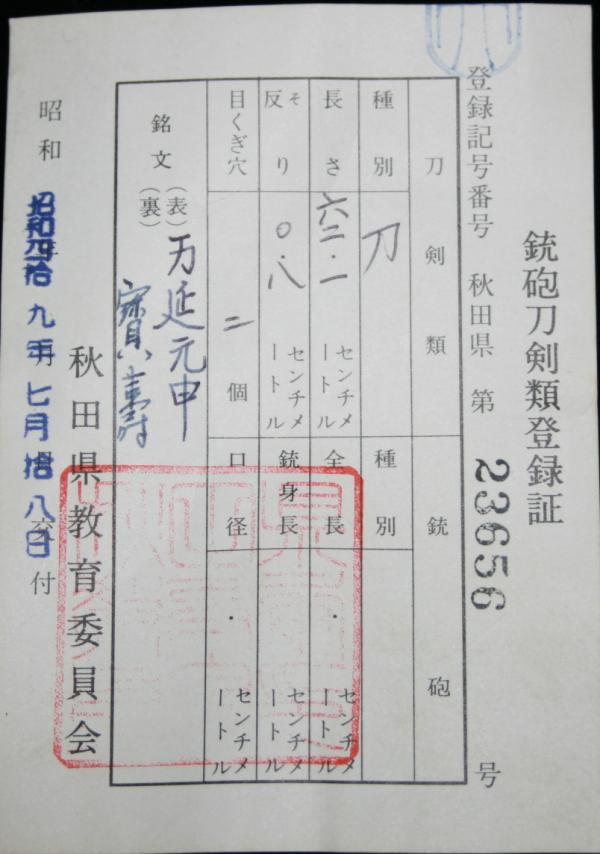 銃砲刀剣類登録証
登録記号番号 秋田県 第 23656 号
刀剣類
種別 刀
長さ 六二・一 センチメートル
反り そり 〇・八 センチメートル
目くぎ穴 二 個
銘文 (表) 万延元申
(裏) 寳壽
銃砲
種別
全長 ・ センチメートル
銃身長 センチメートル
口径 ・ センチメートル
昭和 昭和四拾九年七月拾八日 交付
秋田県教育委員会